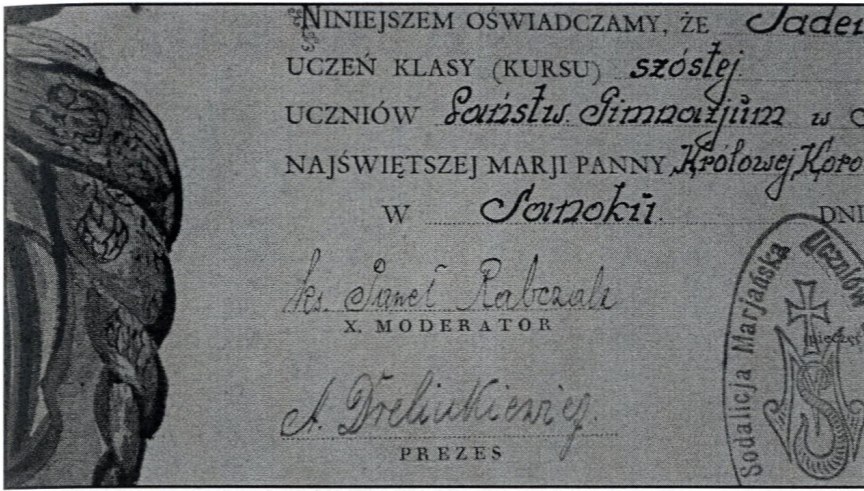 NINIEJSZEM OŚWIADCZAMY, ŻE Tadeu
UCZEŃ KLASY (KURSU) szóstej
UCZNIÓW Państw. Gimnazjum w S
NAJŚWIĘTSZEJ MARJI PANNY, Królowej Koro
W Sanoku. DNI
ks. Paweł Rabczak
X. MODERATOR
A. Dreliukiewicz.
PREZES
Sodalicja Marjańska Uczniów